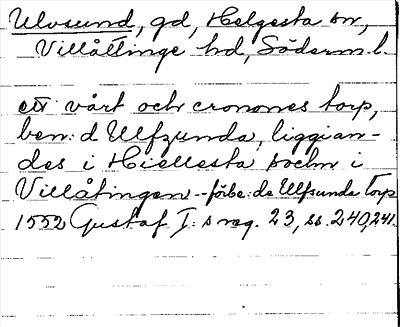 Ulvsund, gd, Helgesta sn,
Villåttinge hd, Söderm. l.
ett vårt och cronones torp,
ben: d Ulfzunda, liggian-
des i Hiellesta sochn i
Villåtingen -- förbe: de Ulfsunda Torp
1552 Gustaf I: s reg. 23, ss. 240, 241.